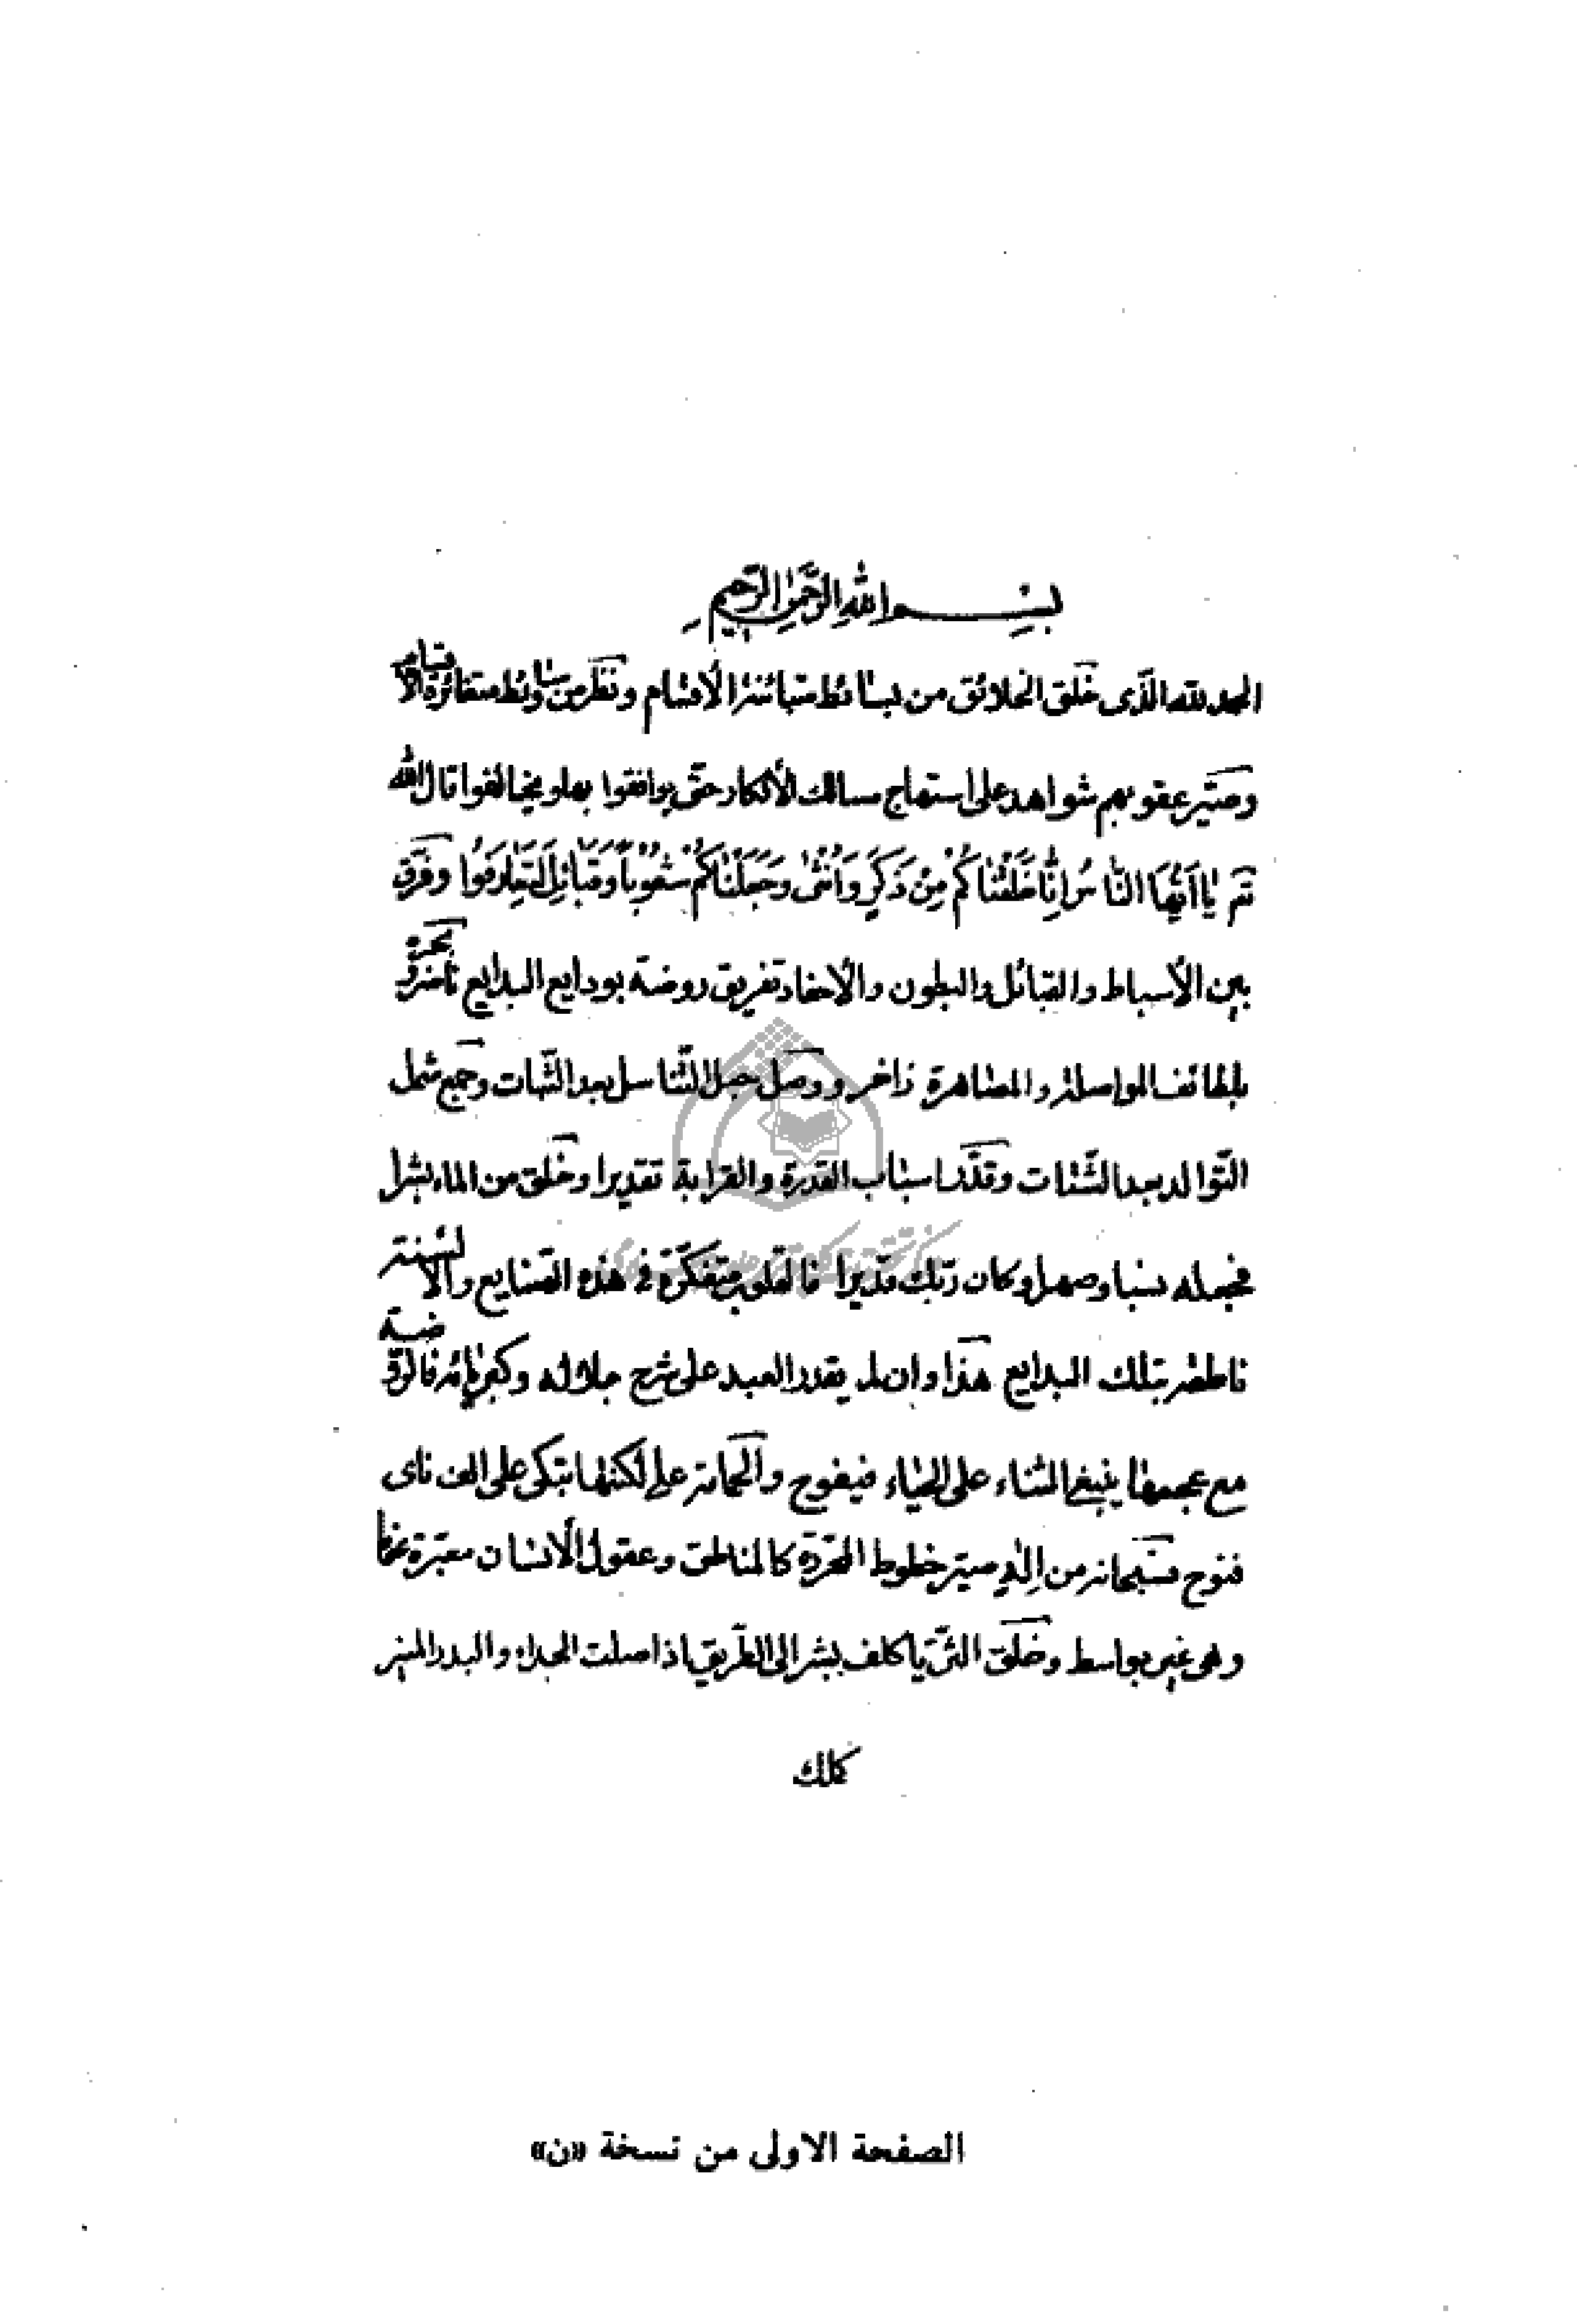 بسم الله الرحمن الرحيم
الحمد لله الذى خلق الخلائق من بسائط متبائنة الأقسام ونظر من وسائط متغائرة الاقسام
وصير عقولهم شواهد على استنهاج مسالك الأفكار حتى يوافقوا بها ويخالفوا قال الله
تم يا اَيُّهَا النّاسُ اِنّا خَلَقْناكُمْ مِنْ ذَكَرٍ وَاُنْثى وَجَعَلْناكُمْ شُعُوباً وَقَبائِلَ لِتَعارَفُوا وفرّق
بين الأسباط والقبائل والبطون والأحفاد تفريق روضة بودايع البدايع ناضرة وبحره
بلطائف المواصلة والمصاهرة زاخر ووصل حبل التناسل بعد الثبات وجمع شمل
التوالد بعد الشتات وقدّر اسباب القدرة والقرابة تقديرا وخلق من الماء بشرا
فجعله نسبا وصهرا وكان ربّك قديرا فالقلوب متفكّرة فى هذه الصنايع والالسنة
ناطقة بتلك البدايع هذا وان لم يقدر العبد على شرح جلاله وكبريائه فالروضة
مع عجمها ينبغى الثناء على الحياء فيفوح والحمامة على لكنتها تبكى على الف ناى
فنوح فسبحانه من اله صير خطوط كالمناطق وعقول الانسان معبّرة
وهى غير بواسط وخلق الثريّا ككف بشير الى الطريق اذا صلت الجداء والبدر المنير
كملك
الصفحة الاولى من نسخة «ن»